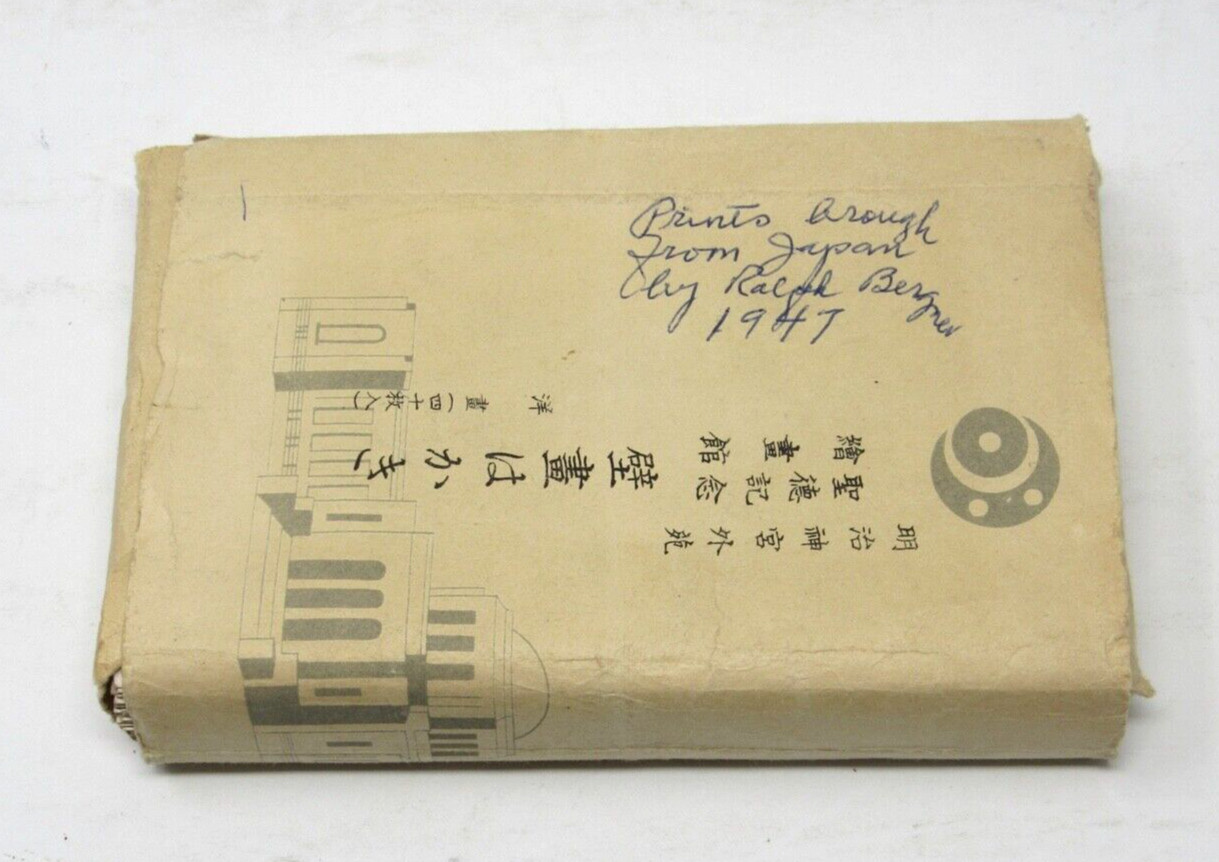 Prints brough
From Japan
by Ralph Bergner
1947
明治神宮外苑
聖徳記念
繪畫館
壁畫はかき
洋畫(四十枚入)